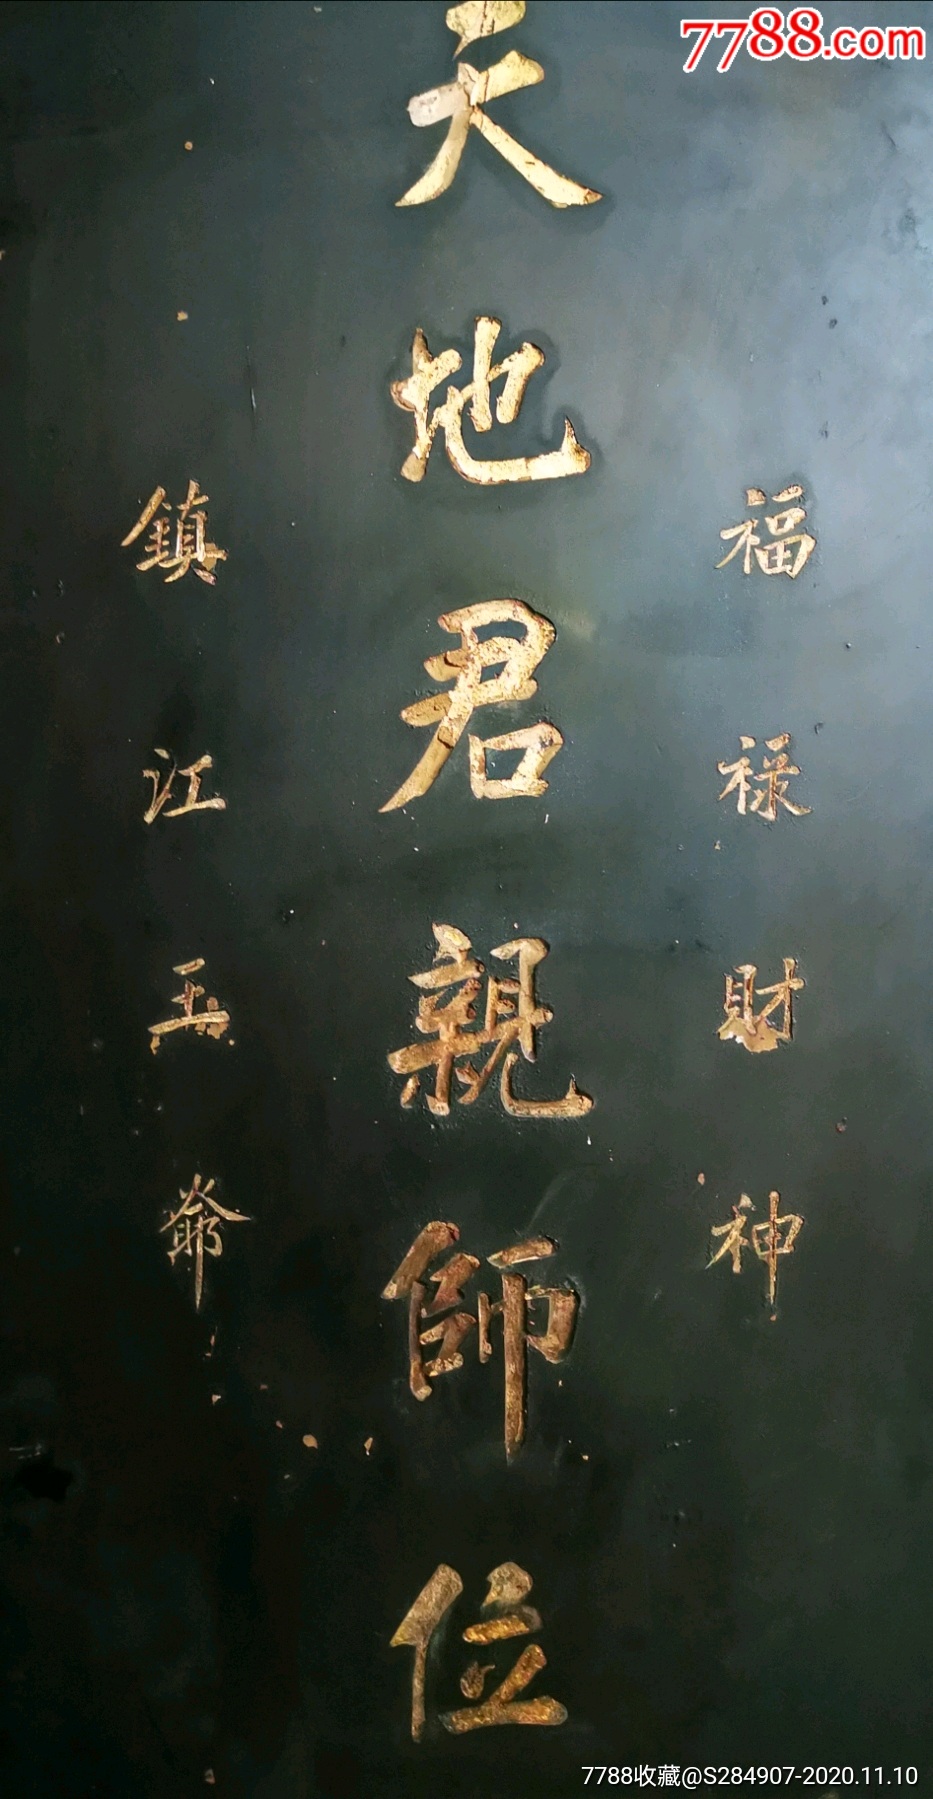 7788.com
福禄財神
天地君親師位
鎮江王爺
7788收藏@S284907-2020.11.10